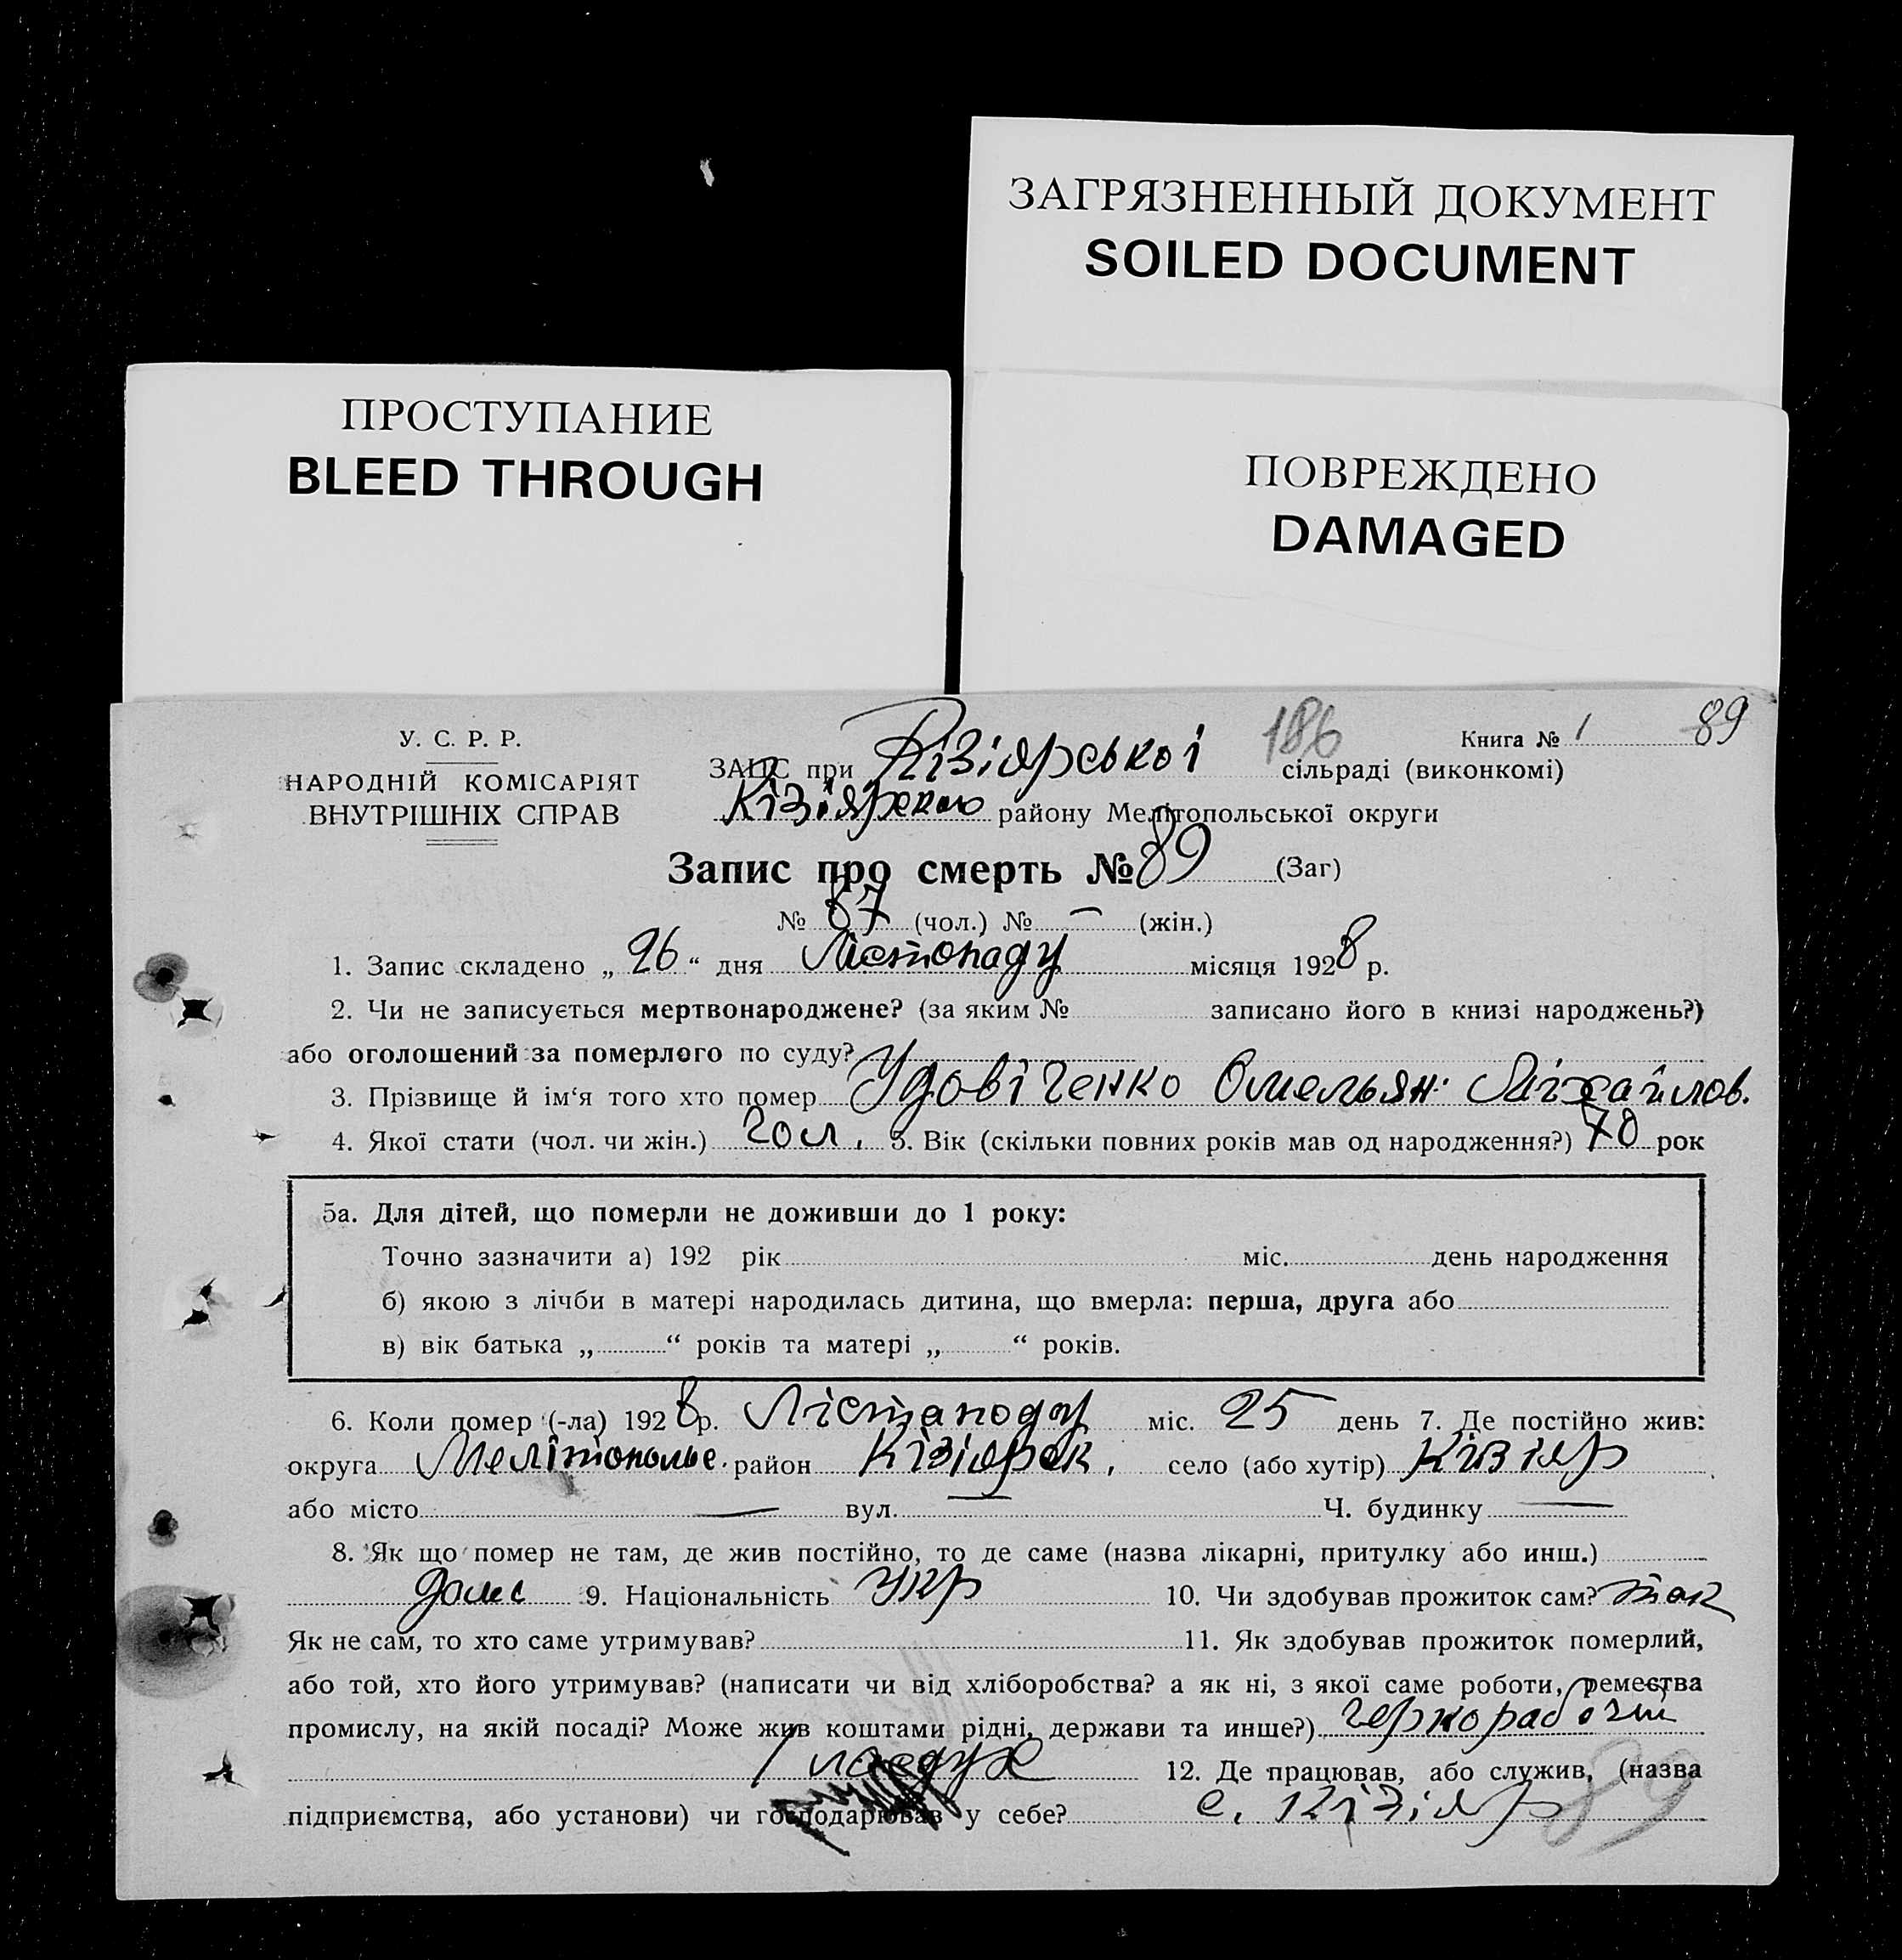 ЗАГРЯЗНЕННЫЙ ДОКУМЕНТ
SOILED DOCUMENT
ПРОСТУПАНИЕ
BLEED THROUGH
ПОВРЕЖДЕНО
DAMAGED
186
Книга № 1 89
У. С. Р. Р.
НАРОДНІЙ КОМІСАРІЯТ
ВНУТРІШНІХ СПРАВ
ЗАГС при Кізіярської сільраді (виконкомі)
Кізіярского району Мелітопольської округи
Запис про смерть № 89 (Заг)
№ 87 (чол.) № — (жін.)
1. Запис складено „ 26 “ дня Лістопаду місяця 1928 р.
2. Чи не записується мертвонароджене? (за яким № записано його в книзі народжень?)
або оголошений за померлого по суду?
3. Прізвище й ім‘я того хто помер Удовіченко Омельян Міхайлов.
4. Якої стати (чол. чи жін.) чол. 5. Вік (скільки повних років мав од народження?) 70 рок
5а. Для дітей, що померли не доживши до 1 року:
Точно зазначити а) 192 рік міс. день народження
б) якою з лічби в матері народилась дитина, що вмерла: перша, друга або
в) вік батька „ “ років та матері „ “ років.
6. Коли помер (-ла) 1928 р. Лістаподу міс. 25 день 7. Де постійно жив:
округа Мелітопольс. район Кізіярск. село (або хутір) Кізіяр
або місто — вул. — Ч. будинку —
8. Як що помер не там, де жив постійно, то де саме (назва лікарні, притулку або инш.)
9. Національність Укр 10. Чи здобував прожиток сам? так
Як не сам, то хто саме утримував? 11. Як здобував прожиток померлий,
або той, хто його утримував? (написати чи від хліборобства? а як ні, з якої саме роботи, ремества
промислу, на якій посаді? Може жив коштами рідні, держави та инше?) чернорабочий
12. Де працював, або служив, (назва
підприємства, або установи) чи господарював у себе? с. Кізіяр
89